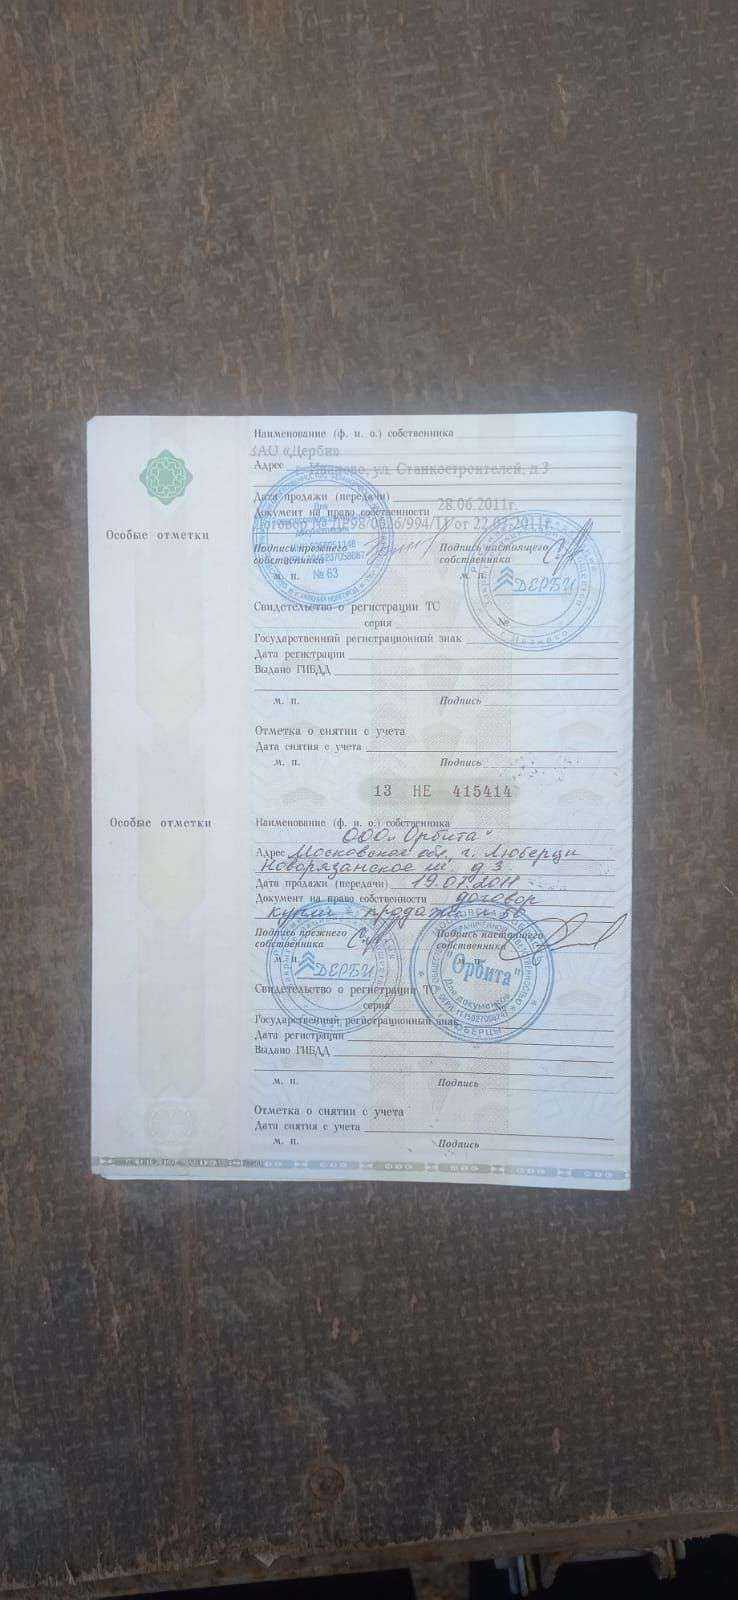 Наименование (ф. и. о.) собственника
ЗАО «Дерби»
Адрес г. Иваново, ул. Станкостроителей, д.3
Дата продажи (передачи) 28.06.2011г.
Документ на право собственности
Договор № ДР98/0526/994/11 от 22.
Особые отметки
Подпись прежнего собственника
Подпись настоящего собственника
м. п.
м. п.
№ 63
ДЕРБИ
Свидетельство о регистрации ТС
серия №
Государственный регистрационный знак
Дата регистрации
Выдано ГИБДД
м. п. Подпись
Отметка о снятии с учета
Дата снятия с учета
м. п. Подпись
13 НЕ 415414
Особые отметки
Наименование (ф. и. о.) собственника
ООО "Орбита"
Адрес Московская обл, г. Люберцы
Новорязанское ш, д 3
Дата продажи (передачи) 19.07.2011
Документ на право собственности договор
купли - продажи
Подпись прежнего собственника
Подпись настоящего собственника
м. п.
м. п.
ДЕРБИ
"Орбита"
Для документов
ЛЮБЕРЦЫ
Свидетельство о регистрации ТС
серия
Государственный регистрационный знак
Дата регистрации
Выдано ГИБДД
м. п. Подпись
Отметка о снятии с учета
Дата снятия с учета
м. п. Подпись